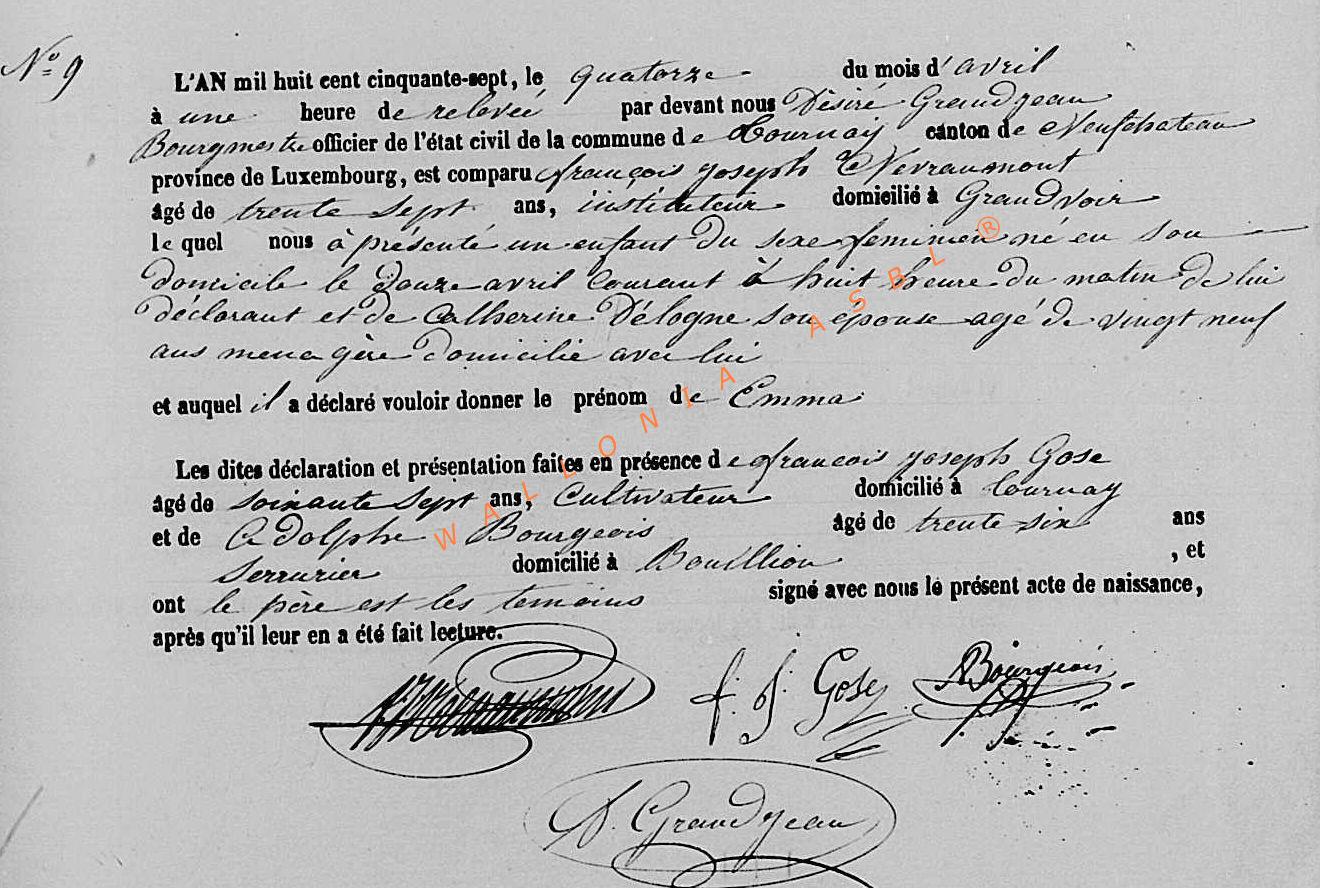 N° 9
L'AN mil huit cent cinquante-sept, le quatorze du mois d'avril
à une heure de relevée par devant nous Dèsiré Grandjean
Bourgmestre officier de l'état civil de la commune de Tournay canton de Neufchateau
province de Luxembourg, est comparu françois joseph Nevraumont
âgé de trente sept ans, instituteur domicilié à Grandvoir
le quel nous à présenté un enfant du sexe feminien né en son
domicile le douze avril Courant à huit heure du matin de lui
déclarant et de Catherine Délogne son épouse agé de vingt neuf
ans menagère domicilié avec lui
et auquel il a déclaré vouloir donner le prénom de Emma
Les dites déclaration et présentation faites en présence de francois joseph Gose
âgé de soixante sept ans, Cultivateur domicilié à tournay
et de Adolphe Bourgeois âgé de trente six ans
Serrurier domicilié à Bouillion, et
ont le père est les temoins signé avec nous le présent acte de naissance,
après qu'il leur en a été fait lecture.
f. J. Gose ABourgeois
D. Grandjean
WALLONIA ASBL ®